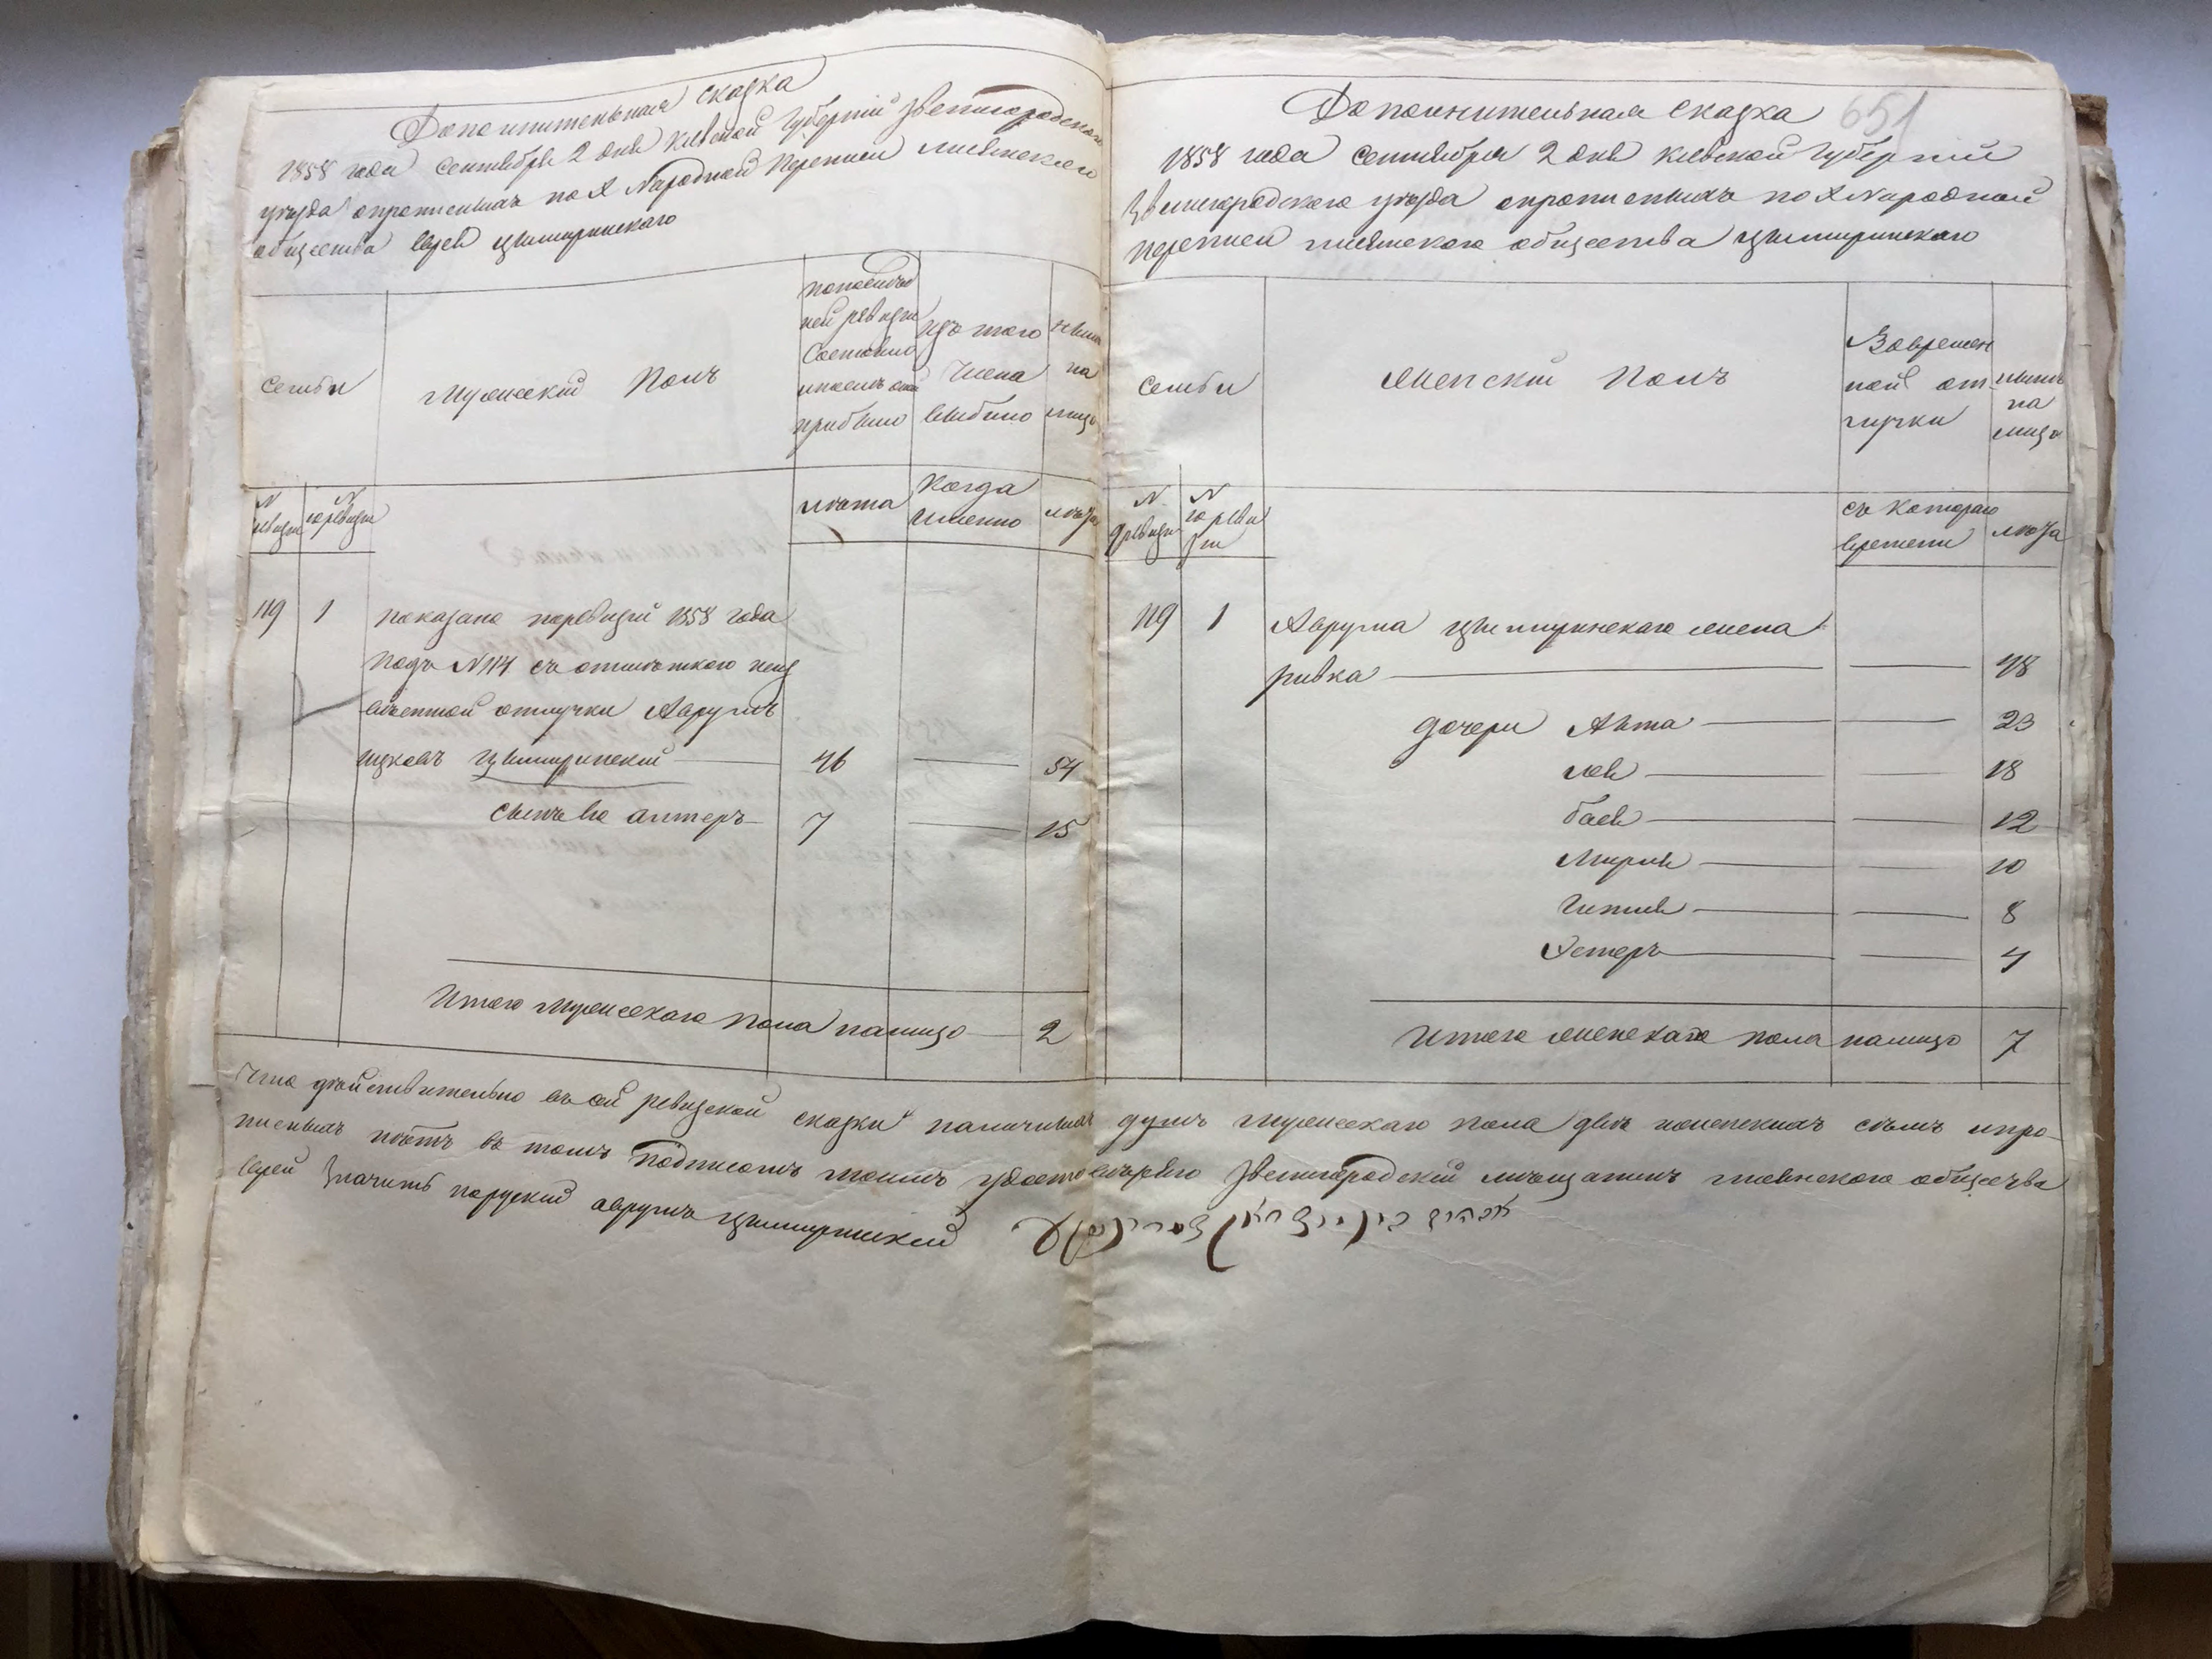 Дополнительная сказка
1858 года сентября 2 дня Киевской Губернiи Звенигородскаго
уезда о прописныхъ по X Народной Переписи
общества еврея Цымиринскаго
семьи
Мужескiй Полъ
по последней ревизiи состояло и после оной прибыло
изъ того числа выбыло
ныне на лицо
N ревизiи
N ревизiи
лета
Когда именно
лета
119 1 показано по ревизiи 1858 года
подъ N 114 съ отметкою неиз
вестной отлучки Аврумъ
Ицковъ Цымиринскiй 46 54
сынъ его антеръ 7 15
Итого Мужескаго Пола на лицо 2
Дополнительная сказка 651
1858 года сентября 2 дня Киевской Губернiи
Звенигородскаго уезда о прописныхъ по X Народной
переписи общества Цымиринскаго
семьи
Женскiй Полъ
Во временной отлучки
ныне на лицо
N ревизiи
N ревизiи
съ котораго времени
лета
119 1 Аврума Цымиринскаго жена
ривка 48
дочери 23
лея 18
бася 12
Мирия 10
Гитля 8
Эстеръ 4
Итого женскаго пола на лицо 7
Что действительно въ сей ревизской сказки наличныхъ душъ мужескаго пола две и женскихъ семь и про
писныхъ нетъ въ томъ подписомъ моимъ удостоверяю Звенигородскiй мещанинъ общества
еврей значитъ по руский аврумъ Цымиринскiй